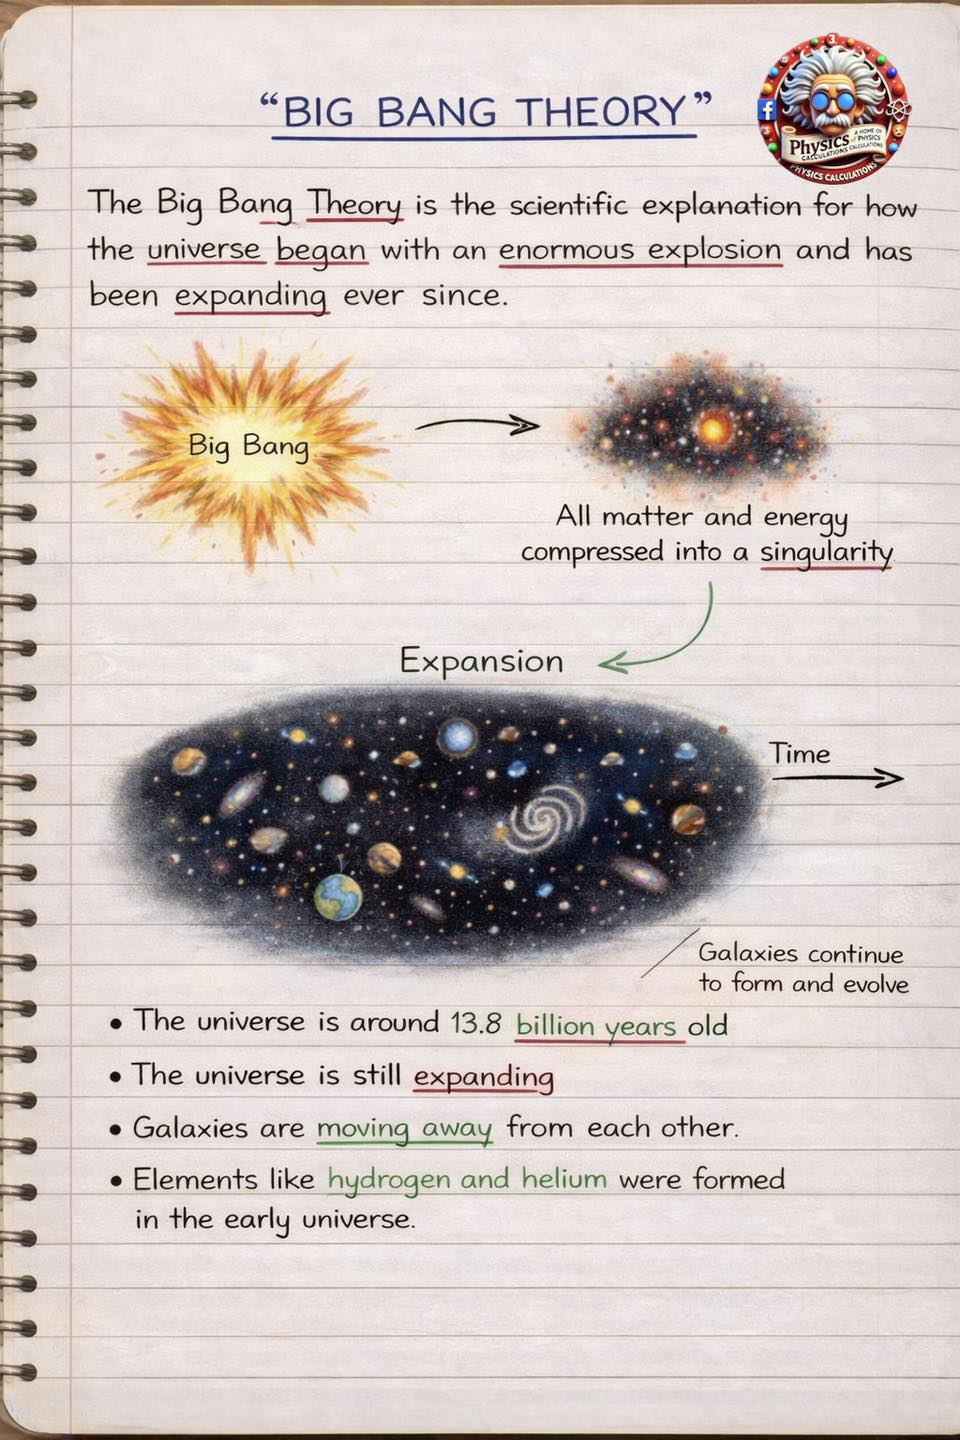 “BIG BANG THEORY”
3
Physics
A HOME OF
PHYSICS
CALCULATIONS
CALCULATIONS
PHYSICS CALCULATIONS
The Big Bang Theory is the scientific explanation for how
the universe began with an enormous explosion and has
been expanding ever since.
Big Bang
All matter and energy
compressed into a singularity
Expansion
Time
Galaxies continue
to form and evolve
• The universe is around 13.8 billion years old
• The universe is still expanding
• Galaxies are moving away from each other.
• Elements like hydrogen and helium were formed
in the early universe.